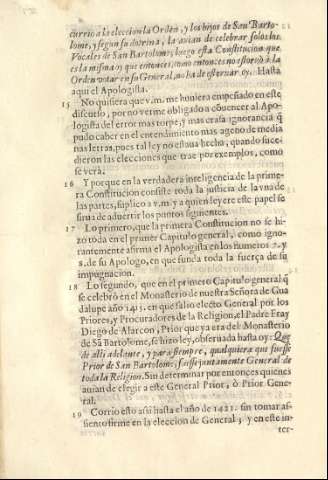 currio a la eleccion la Orden, y los hijos de San Barto-
lome, y segun su dotrina, la avian de celebrar solos los
Vocales de San Bartolome; luego esta Constitucion que
es la misma oy que entonces, como entonces no estorvò à la
Orden votar en su General, no ha de estorvar oy. Hasta
aqui el Apologista.
15 No quisiera que v.m. me huviera empeñado en este
discurso, por no verme obligado a cõvencer al Apo-
logista del error mas torpe, y mas crasa ignorancia q̃
pudo caber en el entendimiento mas ageno de media
nas letras, pues tal ley no estava hecha, quando suce-
dieron las elecciones que trae por exemplos, como
se verà.
16 Y porque en la verdadera inteligencia de la prime-
ra Constitucion consiste toda la justicia de la vna de
las partes, suplico a v.m. y a quien leyere este papel se
sirva de advertir los puntos siguientes.
17 Lo primero, que la primera Constitucion no se hi-
zo toda en el primer Capitulo general, como igno-
rantemente afirma el Apologista en los numeros 2. y
5. de su Apologo, en que funda toda la fuerça de su
impugnacion.
18 Lo segundo, que en el primero Capitulo general q̃
se celebrò en el Monasterio de nuestra Señora de Gua
dalupe año 1415. en que salio electo General por los
Priores, y Procuradores de la Religion, el Padre Fray
Diego de Alarcon, Prior que ya era del Monasterio
de Sã Bartolome, se hizo ley, observada hasta oy: Que
de alli adelante, y para siempre, qualquiera que fuesse
Prior de San Bartolome, fuesse juntamente General de
toda la Religion. Sin determinar por entonces quienes
avian de elegir a este General Prior, ò Prior Gene-
ral.
19 Corrio esto assi hasta el año de 1421. sin tomar as-
siento firme en la eleccion de General; y en este in-
ter-